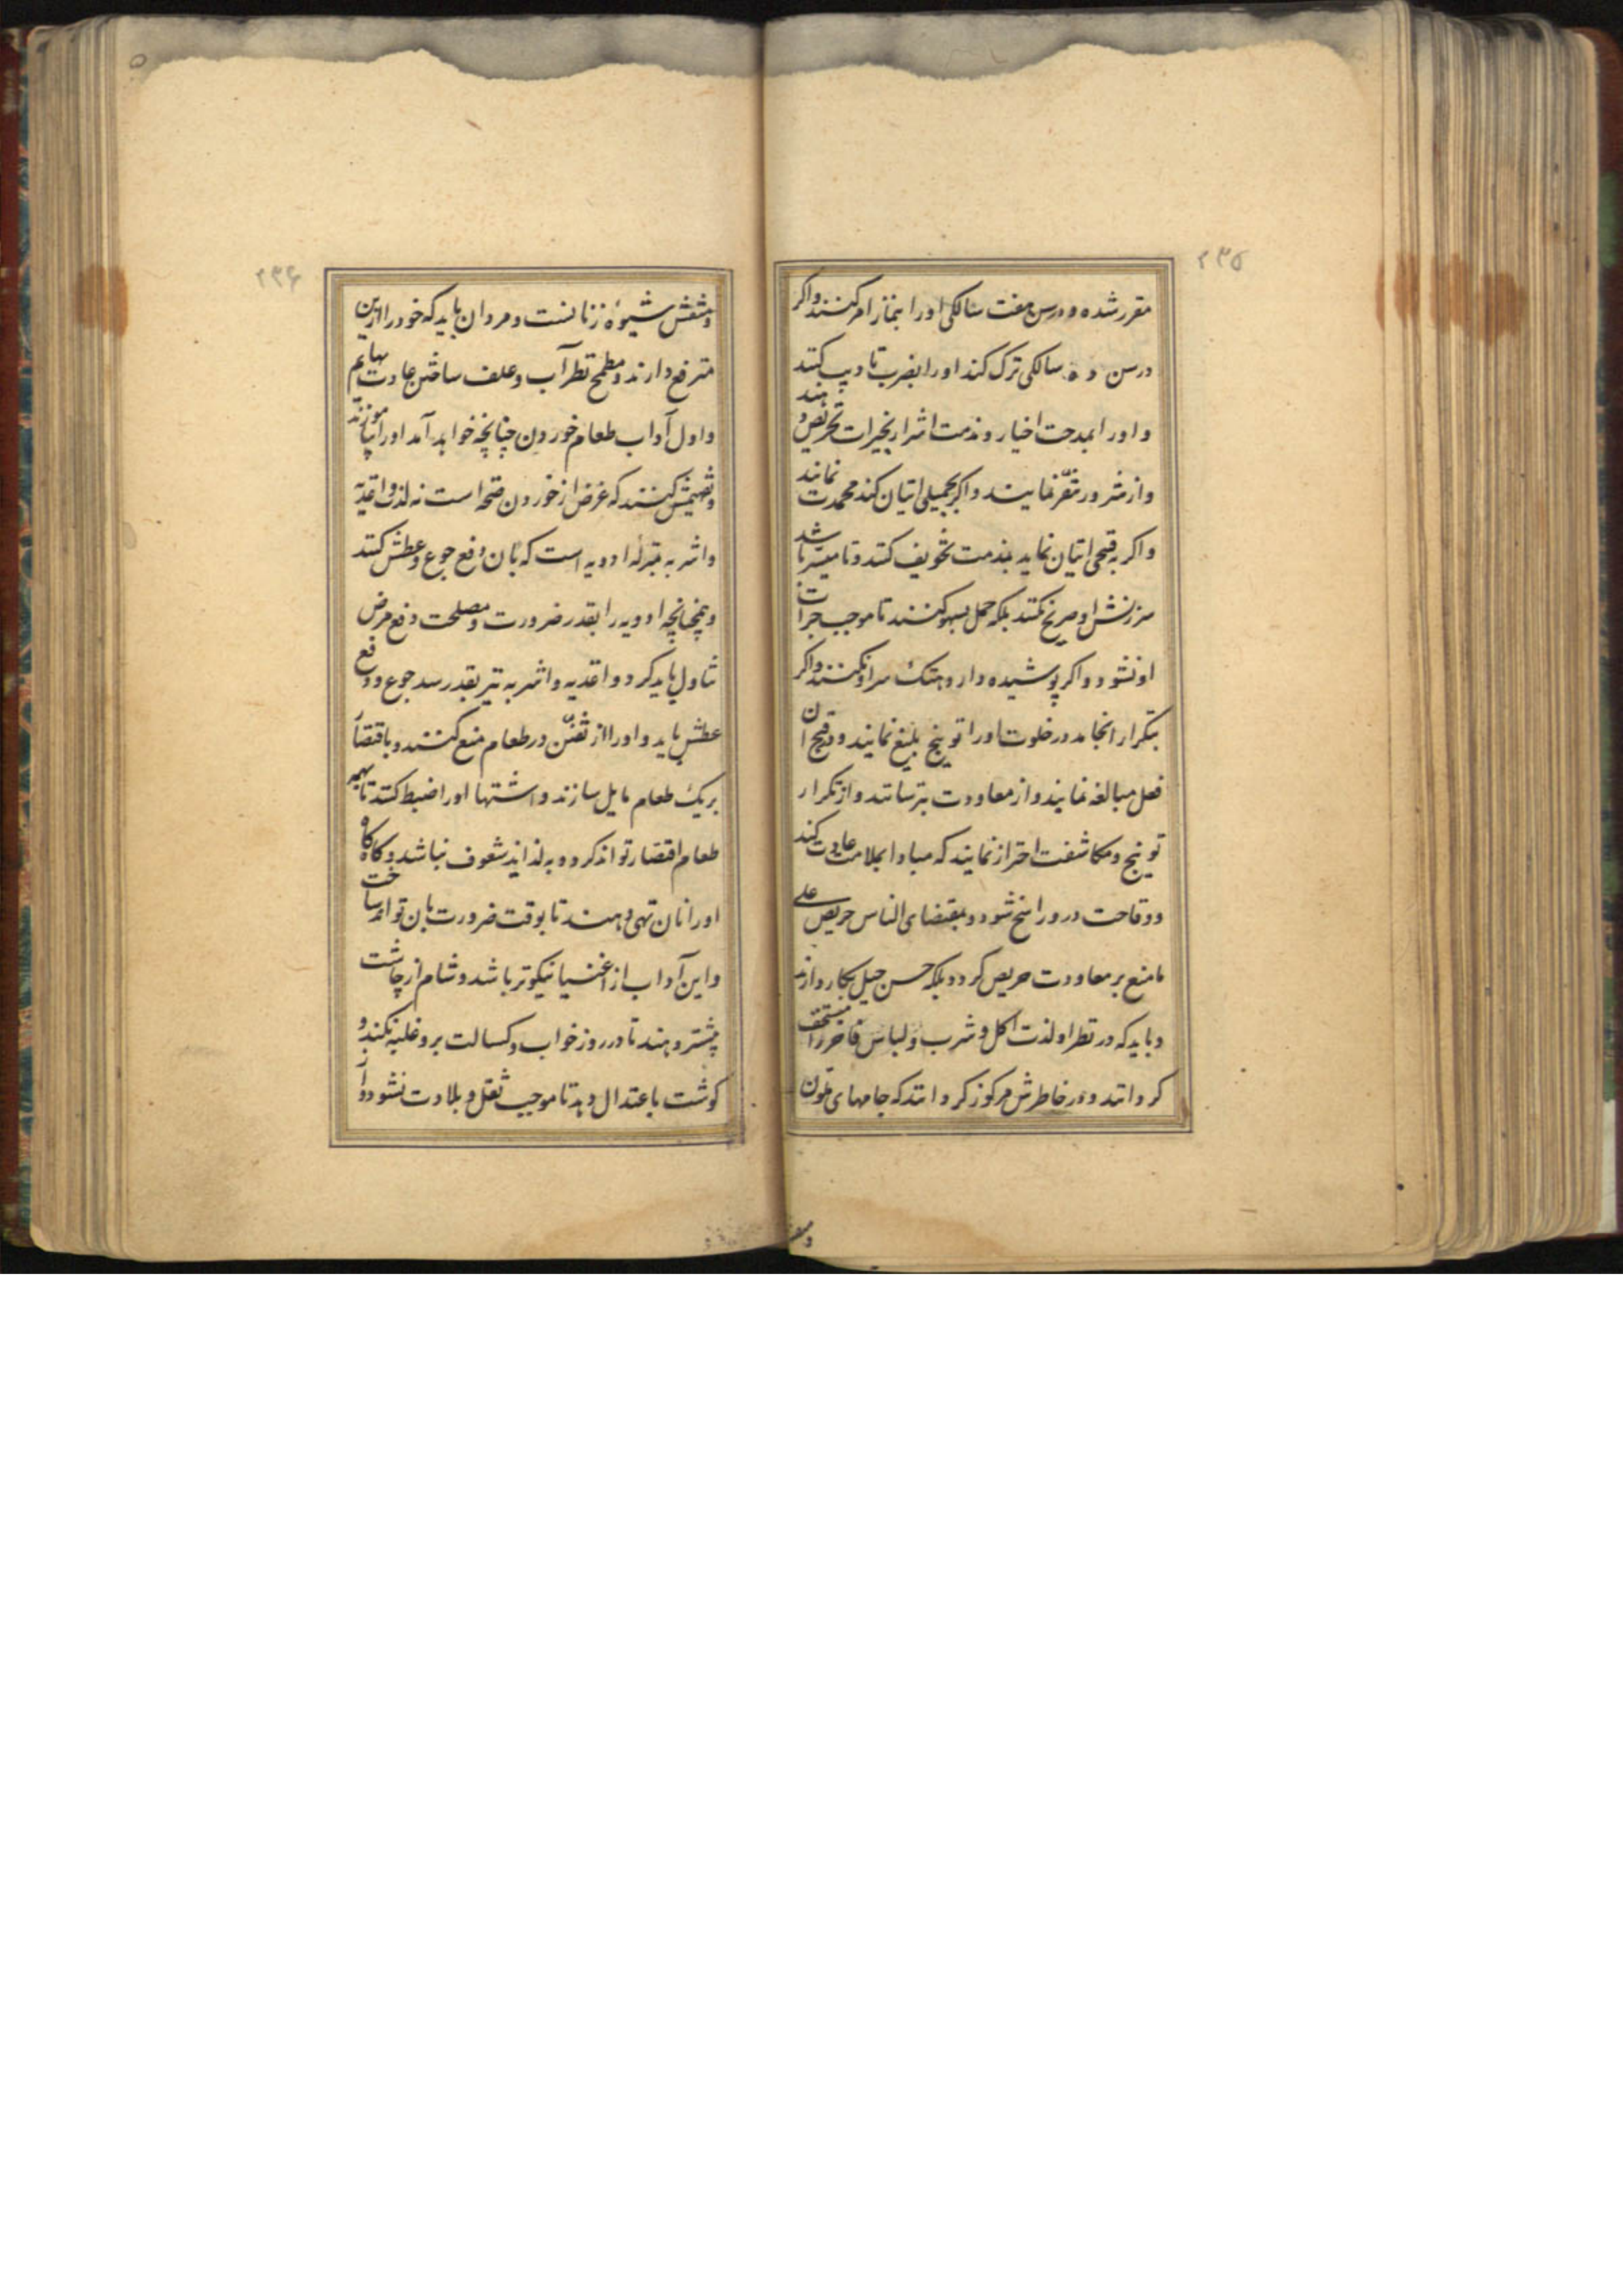 ۲۳۵
مقرر شده و در سن هفت سالگی او را بنماز امر کنند و اگر
در سن ده سالگی ترک کند او را بضرب تادیب کنند
و او را بمدحت اخیار و مذمت اشرار بخیرات تحریص دهند
و از شرور متنفر نمایند و اگر بجمیلی اتیان کند محمدت نمایند
و اگر به قبیحی اتیان نماید بمذمت تخویف کنند و تا میسر باشد
سرزنش او صریح نکنند بلکه حمل بسهو کنند تا موجب جرات
او نشود و اگر پوشیده دارد هتک سر او نکنند و اگر
بتکرار انجامد در خلوت او را توبیخ بلیغ نمایند و در قبح آن
فعل مبالغه نمایند و از معاودت بترسانند و از تکرار
توبیخ و مکاشفت احتراز نمایند که مبادا بملامت عادت کند
و وقاحت درو راسخ شود و بمقتضای الناس حریص علی
مامنع بر معاودت حریص گردد بلکه حسن حیل بکار دارند
و باید که در نظر او لذت اکل و شرب و لباس فاخر را مستخف
گردانند و در خاطرش مرکوز گردانند که جامهای ملون
و منقش
۲۳۶
و منقش شیوه زنانست و مردان باید که خود را ازین
مترفع دارند و مطمح نظر آب و علف ساختن عادت بهایم
و اول آداب طعام خوردن چنانچه خواهد آمد او را بیاموزند
و تفهیمش کنند که غرض از خوردن صحه است نه لذت و اغذیه
و اشربه بمنزلهٔ ادویه است که بآن دفع جوع و عطش کنند
و همچنانچه ادویه را بقدر ضرورت و مصلحت دفع مرض
تناول باید کرد و اغذیه و اشربه نیز بقدر سد جوع و دفع
عطش باید و او را از تفنن در طعام منع کنند و باقتصار
بر یک طعام مایل سازند و اشتهاء او را ضبط کنند تا بهمه
طعام اقتصار تواند کرد و به لذایذ شعوف نباشد و گاه گاه
او را نان تهی دهند تا بوقت ضرورت بآن تواند ساخت
و این آداب از اغنیا نیکوتر باشد و شام از چاشت
بیشتر دهند تا در روز خواب و کسالت برو غلبه نکند و
گوشت باعتدال دهد تا موجب ثقل و بلادت نشود و از